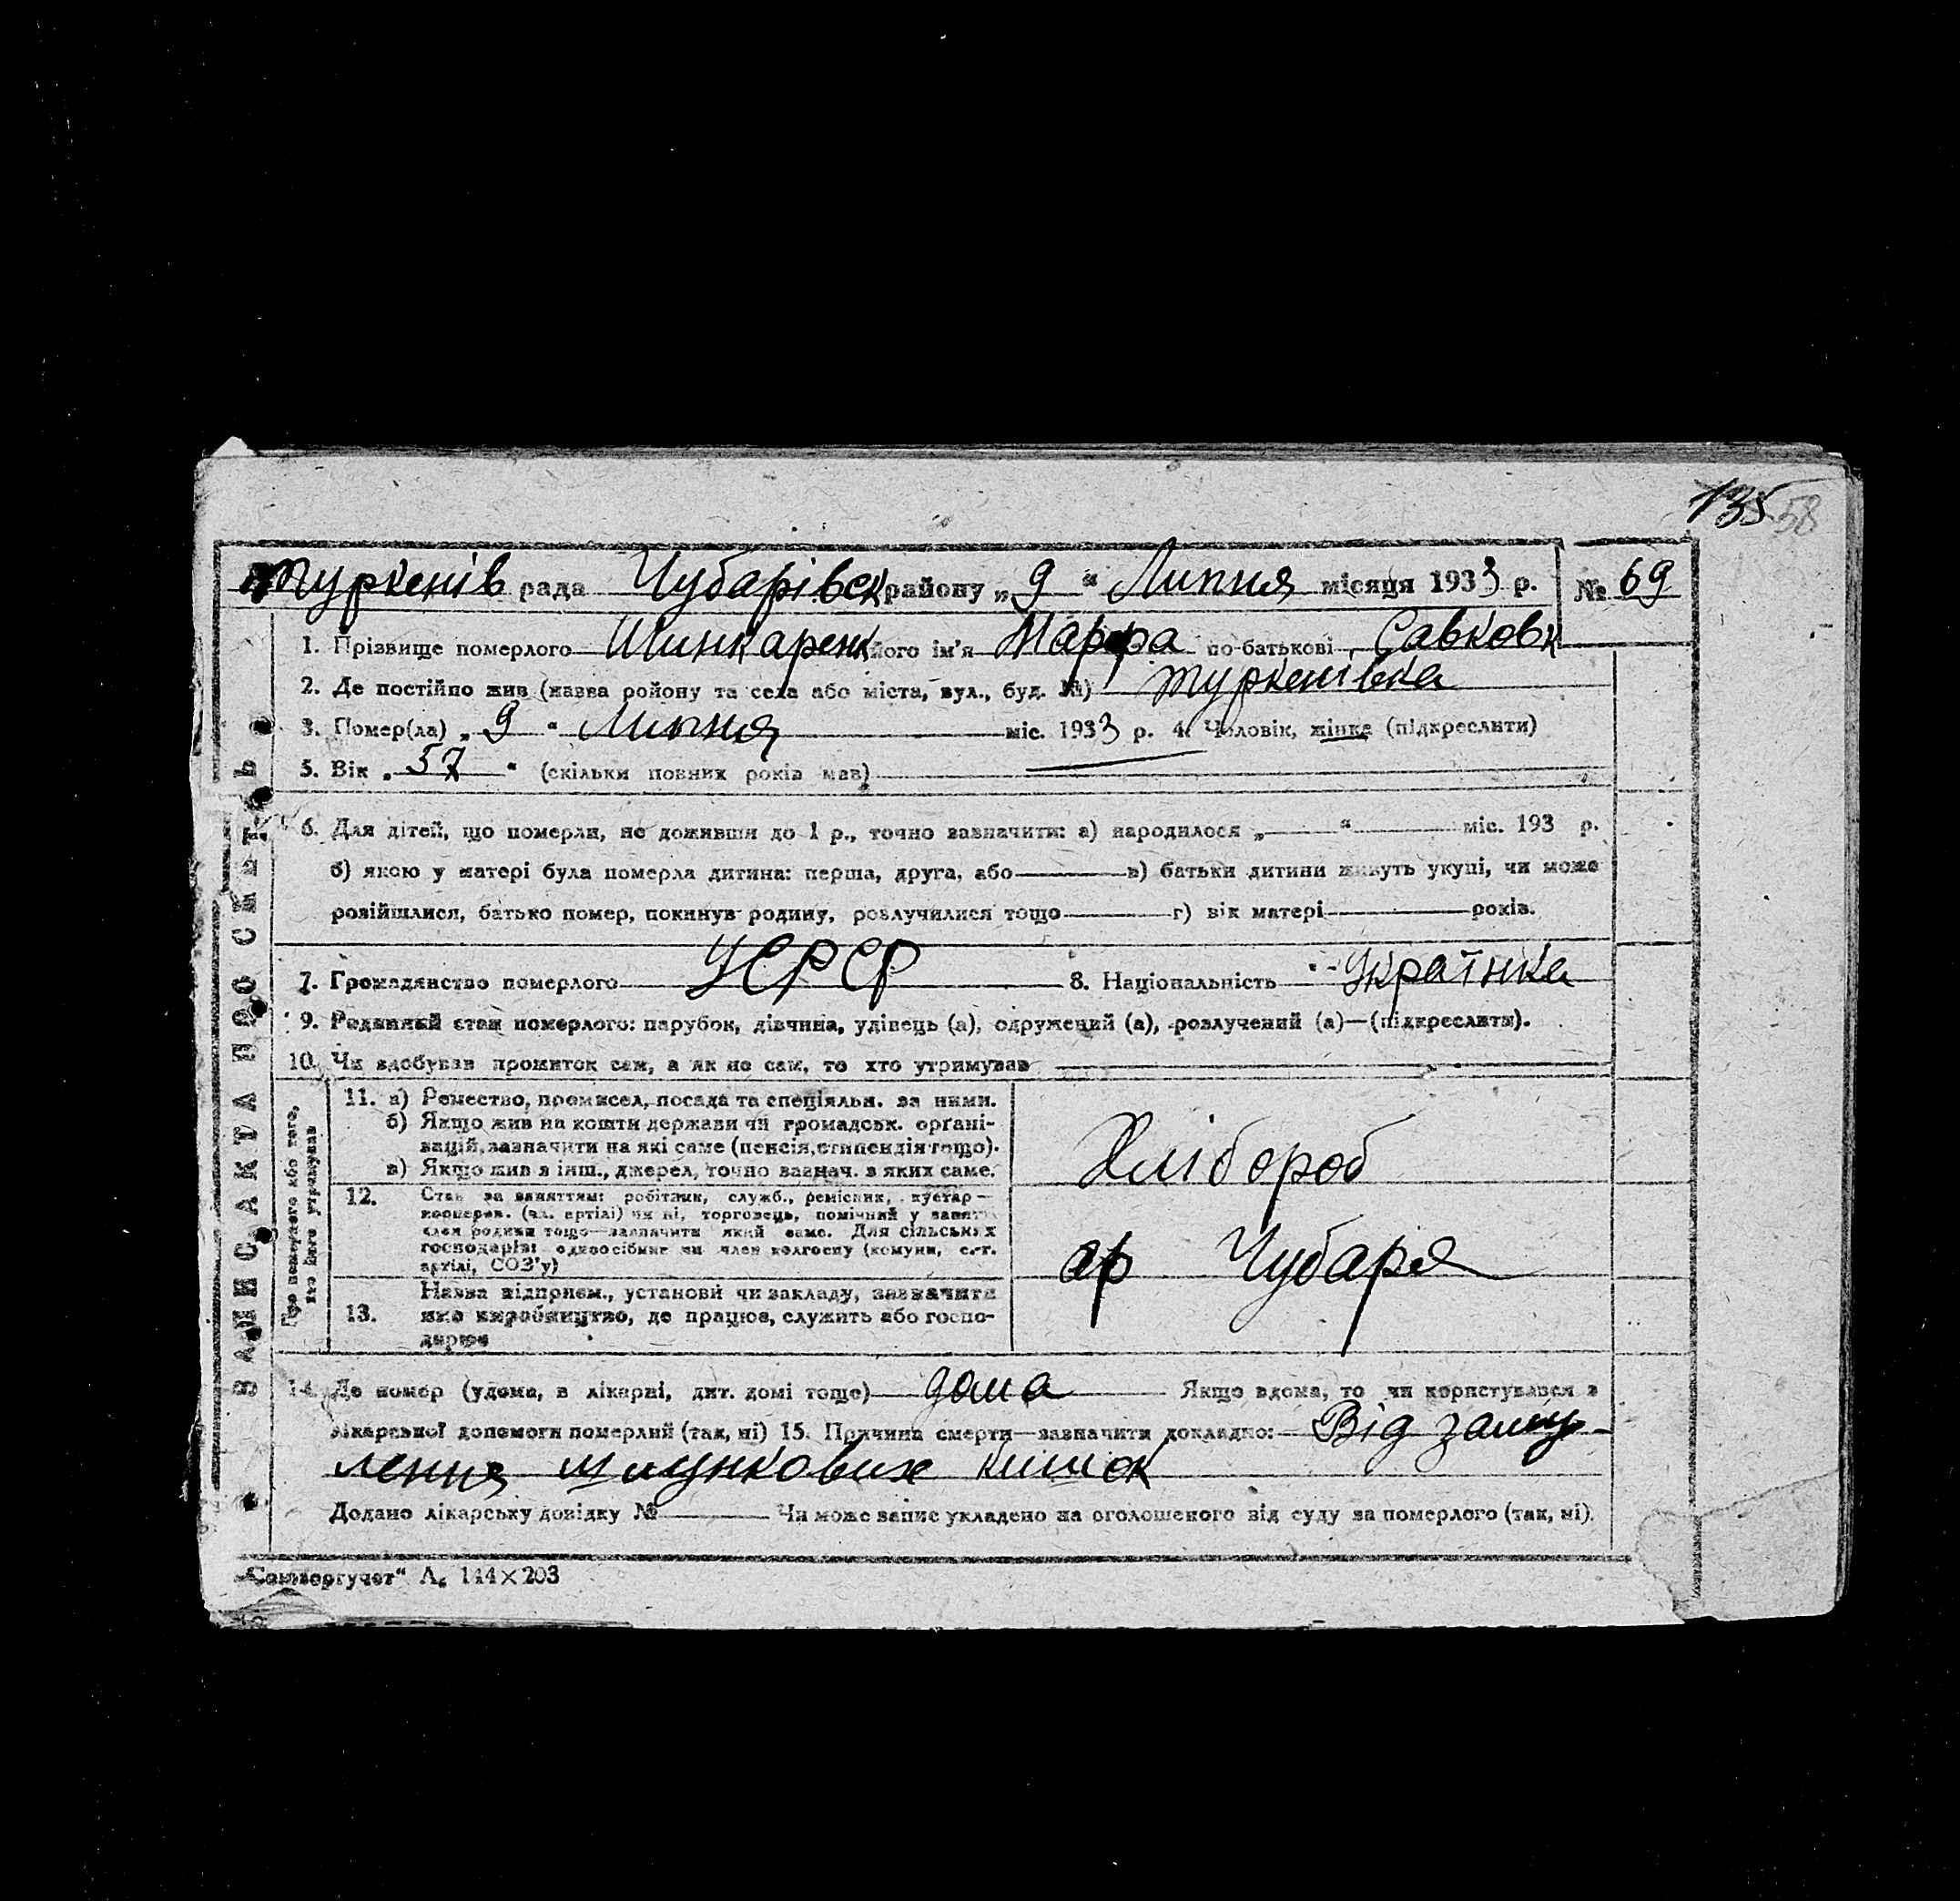 135 58
Туркенів рада Чубарівськ району „9" Липня місяця 1933 р. № 69
1. Прізвище померлого Шинкаренк його ім'я Марфа по-батькові Савковн
2. Де постійно жив (назва ройону та села або міста, вул., буд. №) Туркенівка
3. Помер(ла) „9" Липня міс. 1933 р. 4. Чоловік, жінка (підкреслити)
5. Вік „57" (скільки повних років мав)
6. Для дітей, що померли, не доживши до 1 р., точно зазначити: а) народилося „ " міс. 193 р.
б) якою у матері була померла дитина: перша, друга, або в) батьки дитини живуть укупі, чи може
розійшлися, батько помер, покинув родину, розлучилися тощо г) вік матері років.
7. Громадянство померлого УСРР 8. Національність Українка
9. Родинний стан померлого: парубок, дівчина, удівець (а), одружений (а), розлучений (а)—(підкреслити).
10. Чи здобував прожиток сам, а як не сам, то хто утримував
ЗАПИС АКТА ПРО СМЕРТЬ
Про померлого або того, хто його утримував
11. а) Ремество, промисел, посада та спеціяльн. за ними.
б) Якщо жив на кошти держави чи громадськ. орґані-
зацій, зазначити на які саме (пенсія, стипендія тощо).
в) Якщо жив з інш., джерел, точно зазнач. з яких саме.
Хлібороб
12. Стан за заняттям: робітник, служб., ремісник, кустар—
кооперов. (чл. артілі) чи ні, торговець, помічний у занятт
член родини тощо—зазначити який саме. Для сільських
господарів: одноосібник чи член колгоспу (комуни, с.-г.
артілі, СОЗ'у)
ар Чубаря
13. Назва підприєм., установи чи закладу, зазначити
яке виробництво, де працює, служить або госпо-
дарює
14. Де помер (удома, в лікарні, дит. домі тощо) дома Якщо вдома, то чи користувався з
лікарської допомоги померлий (так, ні) 15. Причина смерти—зазначити докладно: Від заму-
лення шлункових кишок
Додано лікарську довідку № Чи може запис укладено на оголошеного від суду за померлого (так, ні).
„Союзоргучет" А. 144×203